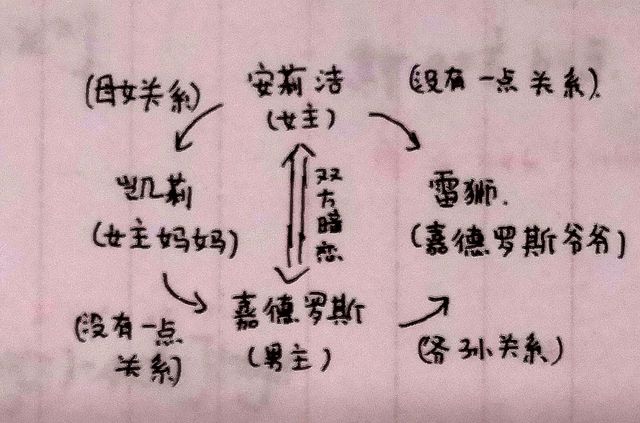 (母女关系)
安莉洁
(女主)
(没有一点关系)
凯莉
(女主妈妈)
双方暗恋
雷狮.
(嘉德罗斯爷爷)
(没有一点
关系)
嘉德罗斯
(男主)
(爷孙关系)